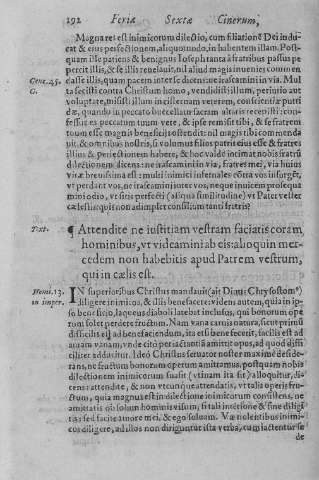 192 Feriæ Sextæ Cinerum,
Magna res est inimicorum dilectio, cum filiationẽ Dei indu-
cat & eius perfectionem, aliquo modo, in habentem illam. Post-
quam ille patiens & benignus Ioseph tanta à fratribus passus
percit illis, & se illis reuelauit, nil aliud magis inuenies commen-
Gene. 45. casse illis, quam pacem inter se dicens: ne irascamini in via. Mul
G. ta fecisti contra Christum homo, vendidisti illum, perinio aut
voluptate, misisti illum in cisternam veterem, conscientiæ putri
dæ, quando in peccato buccellam sacram altaris recepisti: con-
fessus es peccatum tuum vere, & ipse remisit tibi, & se fratrem
tuum esse magnis beneficijs ostendit: nil magis tibi commenda
uit, & omnibus nostris, si volumus filios patris eius esse & fratres
illius & perfectionem habere, & hoc valde incimat nobis fratrũ
dilectionem dicens: ne irascamini in via, fratres mei, via huius
vitæ breuissima est: multi inimici infernales cõtra vos insurgũt,
vt perdant vos, ne irascamini inter vos, neque inuicem prosequa
mini odio, vt sitis perfecti (aliqua similitudine) vt Pater vester
cælestis qui si non adimplet consilium tanti fratris?
Text. ¶ Attendite ne iustitiam vestram faciatis coram
hominibus, vt videamini ab eis: alioquin mer-
cedem non habebitis apud Patrem vestrum,
qui in cælis est.
Homi. 13. IN superioribus Christus mandauit (ait Diuus Chrysostom⁹)
in imper. diligere inimicos, & illis benefacere: videns autem, quia in ip-
so beneficio, laqueus diaboli latebat inclusus, qui bonorum ope
rum solet perdere fructum. Nam vana carnis natura, sicut primũ
difficilis est ad benefaciendum, ita etsi bene fecerit, facilis est ad
auram vanam, vnde cito per iactantiã amittit opus, ad quod diffi
ciliter adducitur. Ideò Christus seruator noster maxime deside-
rans, ne fructum bonorum operum amittamus, postquam nobis
dilectionem inimicorum suasit (vtinam ita sit) alloquitur, di-
cens: attendite, & non vtcunque attendatis, vt talis operis fru-
ctum, quia magnus est in dilectione inimicorum consistens, ne
amittatis ob solum hominis visum, si tali intẽtione & sine diligi
tis: sed facite amore mei, & ego soluam. Væ nolentibus inimi-
cos diligere, ad illos non diriguntur ista verba, cum iactentur se
de